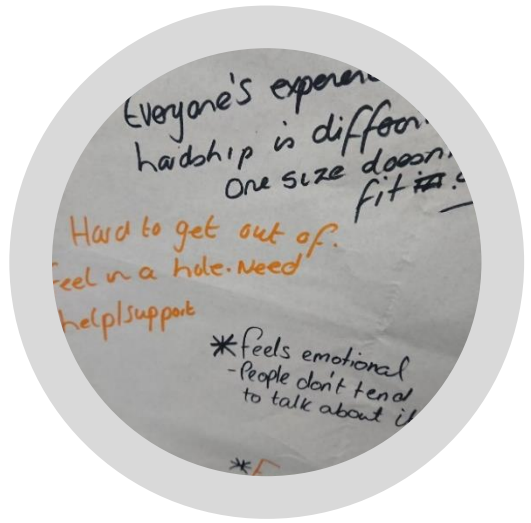 Everyone's experien
hardship is differen
one size doesn
fit
Hard to get out of.
feel in a hole. Need
help/support
* feels emotional
- People don't tend
to talk about i
*